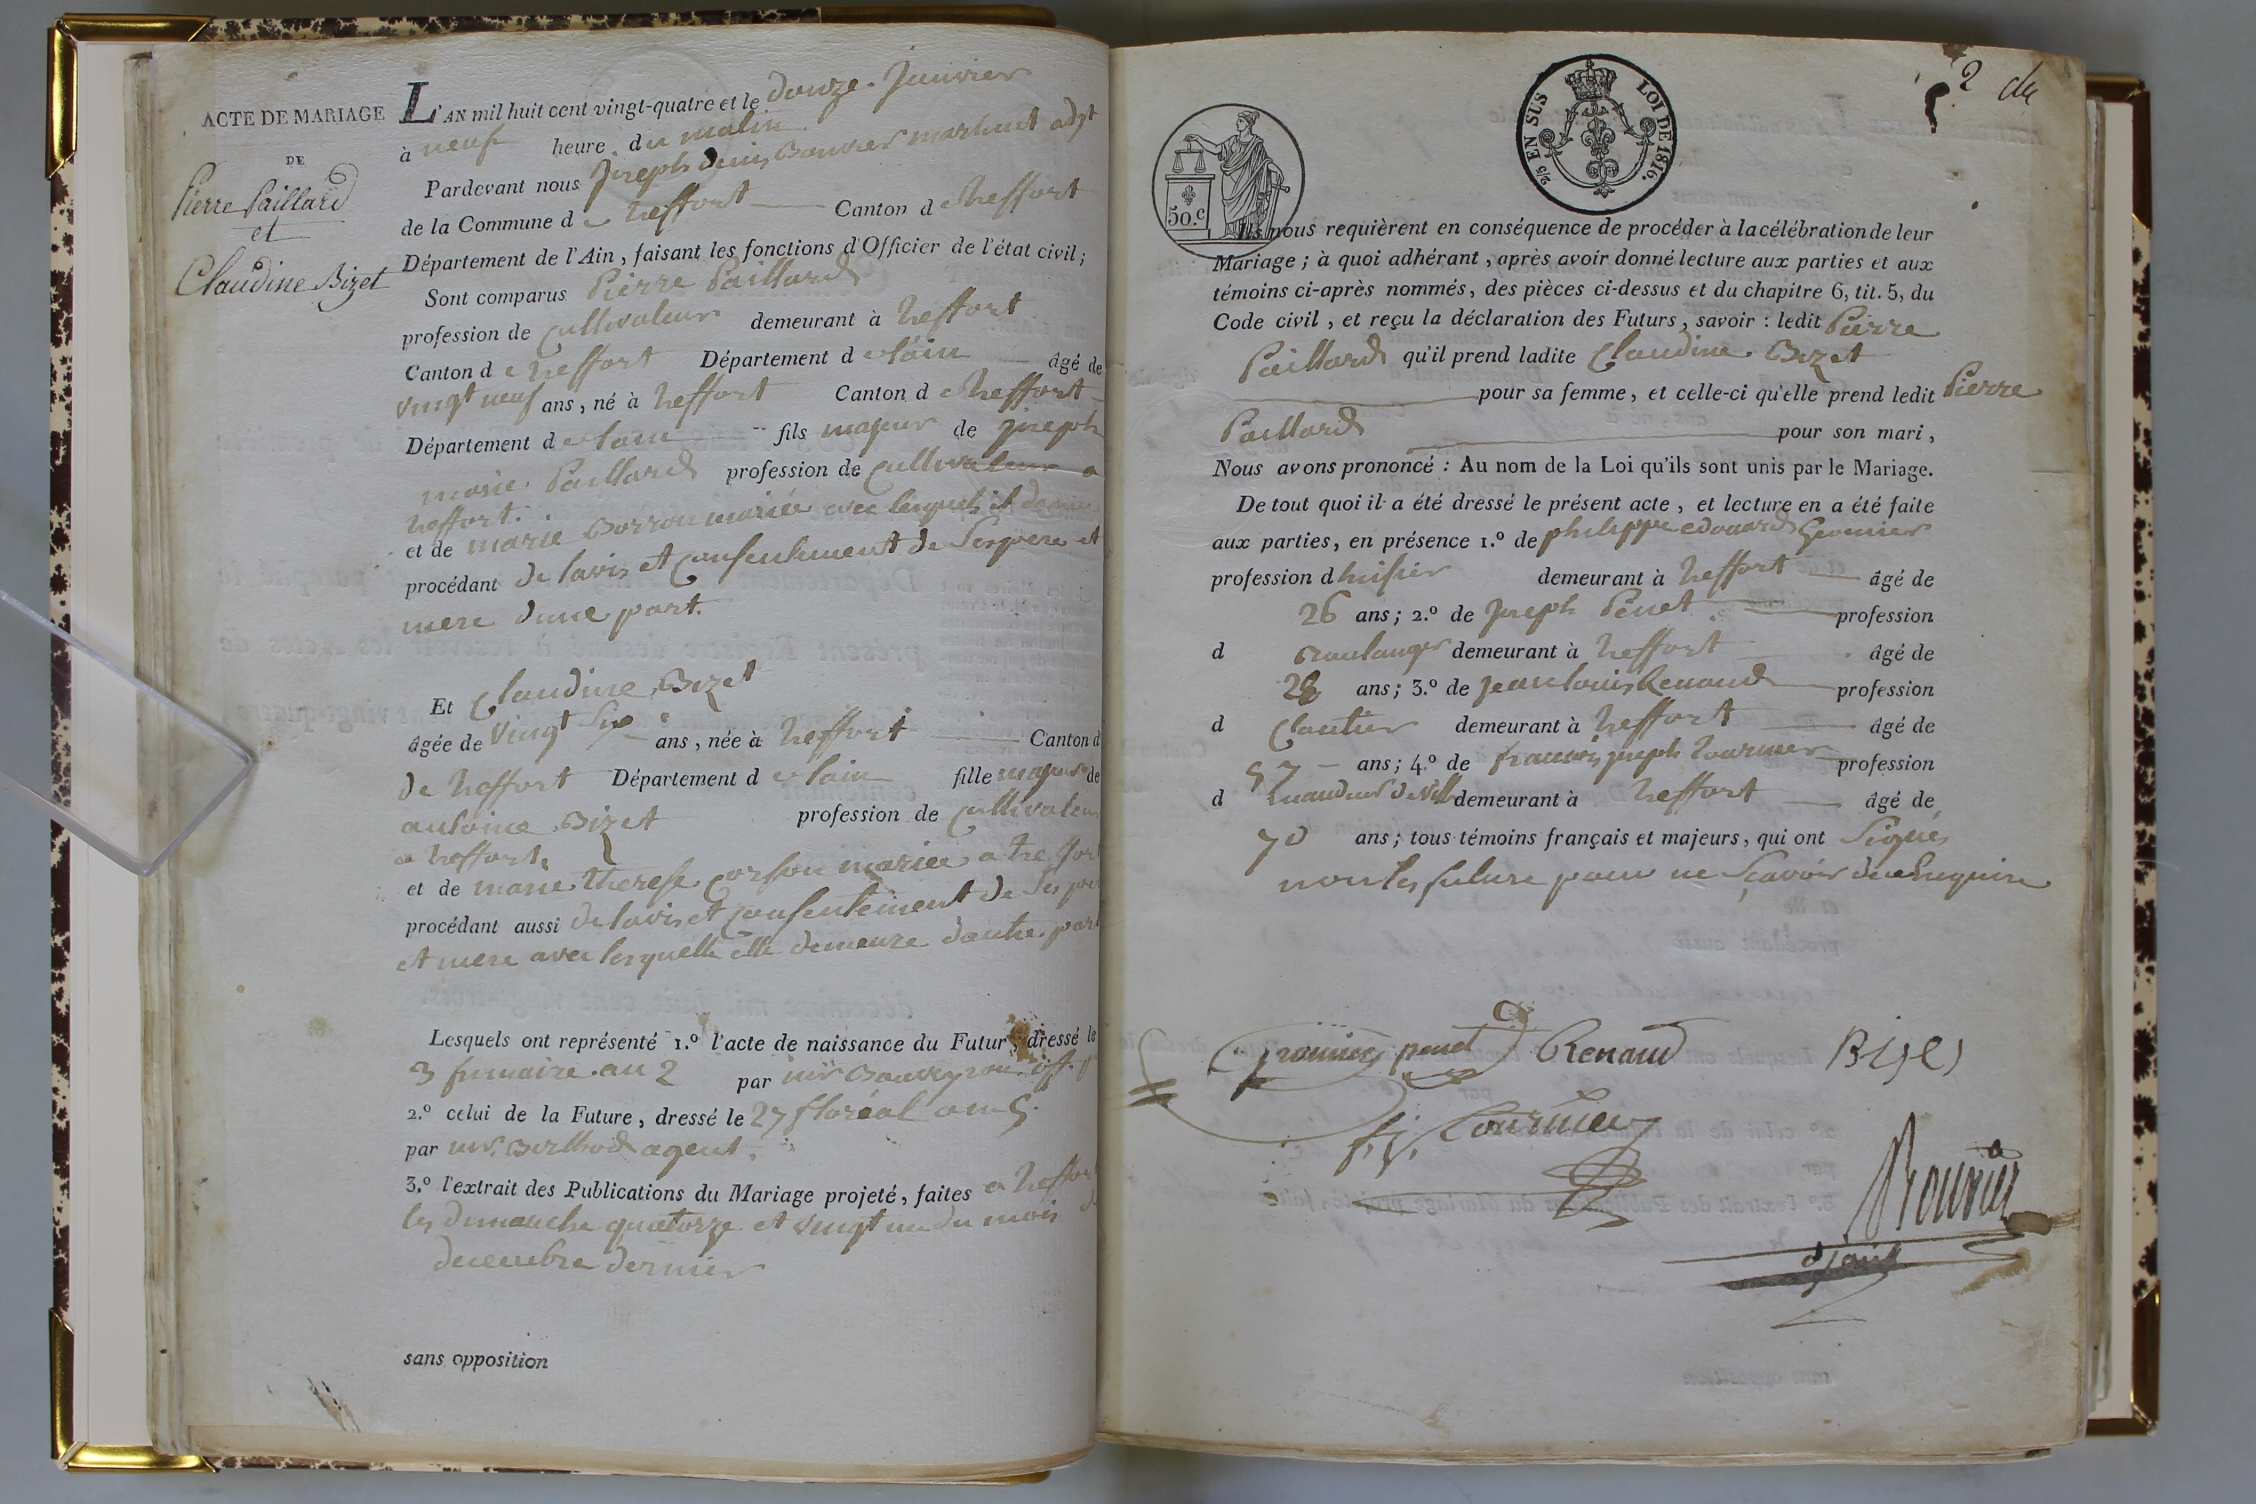 ACTE DE MARIAGE
DE
Pierre Paillard
et
Claudine Bizet
L'AN mil huit cent vingt-quatre et le douze Janvier
à neuf heure du matin
Pardevant nous Joseph denis Bouvier marchant adjt
de la Commune de treffort Canton de treffort
Département de l'Ain, faisant les fonctions d'Officier de l'état civil;
Sont comparus Pierre Paillard
profession de cultivateur demeurant à treffort
Canton de treffort Département de lain âgé de
vingt neuf ans, né à treffort Canton de treffort
Département de lain fils majeur de joseph
marie Paillard profession de cultivateur a
treffort.
et de marie mariée avec lesquels il
procédant de lavis et consentement de ses pere et
mere dune part.
Et Claudine Bizet
âgée de vingt six ans, née à treffort Canton d
de treffort Département de lain fille majeure de
antoine Bizet profession de cultivateur
a treffort
et de marie therese mariée a treffort
procédant aussi de lavis et consentement de ses
et mere avec lesquelle elle demeure dautre part
Lesquels ont représenté 1.º l'acte de naissance du Futur, dressé le
3 frimaire an 2 par
2.º celui de la Future, dressé le 27 floréal an 5
par mr. Berthod agent.
3.º l'extrait des Publications du Mariage projeté, faites a treffort
les dimanche quatorze et vingt un du mois de
decembre dernier
sans opposition
2 du
50.c
2/5 EN SUS LOI DE 1816.
Ils nous requièrent en conséquence de procéder à la célébration de leur
Mariage; à quoi adhérant, après avoir donné lecture aux parties et aux
témoins ci-après nommés, des pièces ci-dessus et du chapitre 6, tit. 5, du
Code civil, et reçu la déclaration des Futurs, savoir : ledit Pierre
Paillard qu'il prend ladite Claudine Bizet
pour sa femme, et celle-ci qu'elle prend ledit Pierre
Paillard pour son mari,
Nous avons prononcé : Au nom de la Loi qu'ils sont unis par le Mariage.
De tout quoi il a été dressé le présent acte, et lecture en a été faite
aux parties, en présence 1.º de philippe edouard
profession d huisier demeurant à treffort âgé de
26 ans; 2.º de joseph Penet profession
d Boulanger demeurant à treffort âgé de
28 ans; 3.º de jean louis Renaud profession
d cloutier demeurant à treffort âgé de
57 ans; 4.º de francois joseph tournier profession
d demeurant à treffort âgé de
70 ans; tous témoins français et majeurs, qui ont signés
non les future pour ne sçavoir de enquire
penet Renaud
f. j. Tournier
Bouvier
adjoint